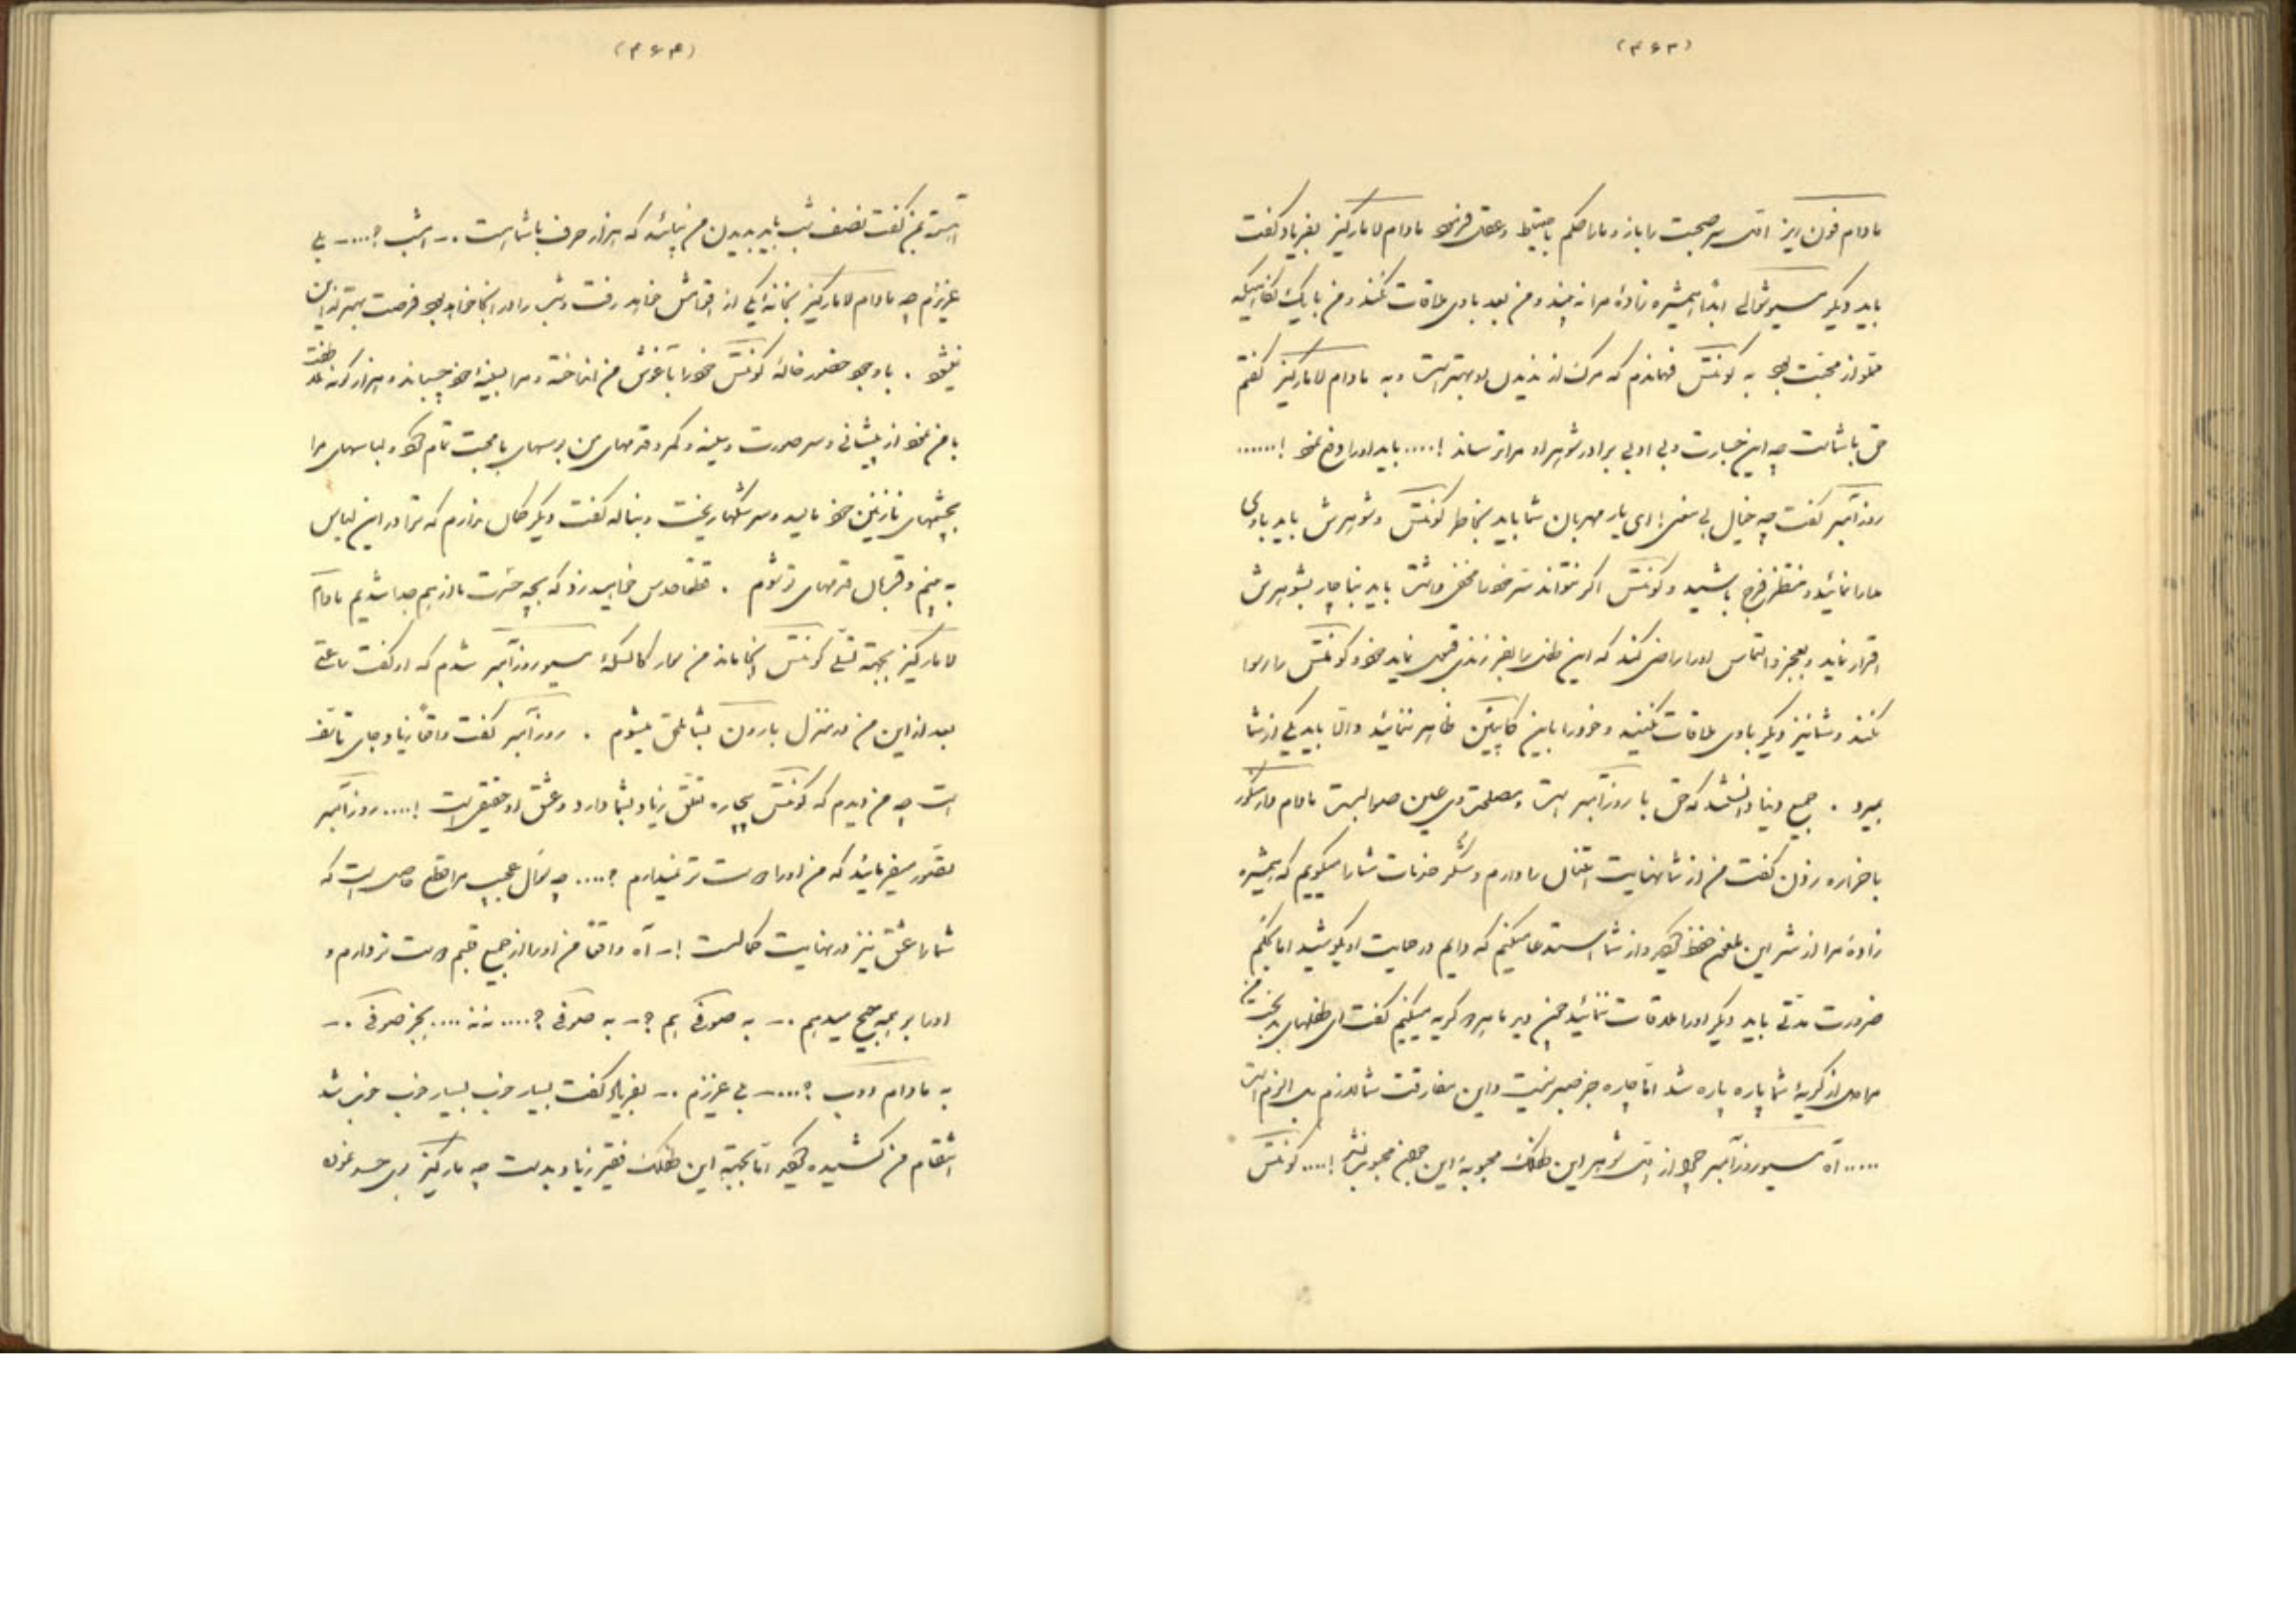 (۴۶۳)
مادام فون ریز اول سر صحبت را باز و ما را حکم باحتیاط و عقل فرمود مادام لا مارکیز بفریاد گفت
باید دیگر مسیو شوالی ابداً همشیره زادهٔ مرا نه بیند و من بعد با وی ملاقات نکند و من با یک نگاهیکه
مملو از محبت بود به کونتس فهماندم که مرگ از ندیدن او بهتر است و به مادام لا مارکیز گفتم
حق با شماست چه این جسارت و بی ادبی برادر شوهر او مرا ترساند !.... باید او را دفع نمود !......
روزآمبر گفت چه خیال بی معنی ! ای یار مهربان شما باید بخاطر کونتس و شوهرش باید با وی
مدارا نمائید و منتظر فرج باشید و کونتس اگر نتواند سرّ خود را مخفی داشت باید بناچار بشوهرش
اقرار نماید و بعجز و التماس او را راضی کند که این طفل را بفرزندی قبول نماید خود کونتس را رسوا
نکند و شما نیز دیگر با وی ملاقات نکنید و خود را باین کاپیتن ظاهر ننمائید و الّا باید یکی از شما
بمیرد . جمیع دنیا دانستند که حق با روزآمبر است و مصلحت وی عین صوابست مادام دارسکور
با خزاره رذون گفت من از شما نهایت امتنان را دارم و شکر خدمات شما را میگویم که همشیره
زادهٔ مرا از شر این ملعون حفظ کردید و از شما استدعا میکنم که دایم در حمایت او بکوشید اما بحکم
ضرورت مدتی باید دیگر او را ملاقات ننمائید چون دیر ما هر دو گریه میکنیم گفت ای طفلهای بدبخت من
مرا دل از گریهٔ شما پاره پاره شد امّا چاره جز صبر نیست و این مفارقت شما لازم بل الزم است
..... آه مسیو روزآمبر چرا از اول شوهر این طفلک محبوبهٔ این جوان محبوب نشد !.... کونتس

(۴۶۴)
آهسته بمن گفت نصف شب باید بدیدن من بیائید که هزار حرف با شما است .ـ امشب ؟....ـ بلی
عزیزم چه مادام لا مارکیز بخانهٔ یکی از اقوامش خواهد رفت و شب را در آنجا خواهد بود فرصت بهتر از این
نمیشود . با وجود حضور خاله کونتس خود را بآغوش من انداخته و مرا بسینهٔ خود چسبانید و هزار گونه ملاطفت
با من نمود از پیشانی و سر صورت و سینه و کمر و قدمهای من بوسهای با محبت تمام کرد و لباسهای مرا
بچشمهای نازنین خود مالید و سر شکها ریخت و بناله گفت دیگر محال ندارم که ترا در این لباس
به بینم و قربان قدمهای تو شوم . قطعاً حدس خواهید زد که بچه حسرت ما از هم جدا شدیم مادام
لا مارکیز بجهة تسلّی کونتس آنجا ماند من سوار کالسکهٔ مسیو روزآمبر شدم که او گفت ساعتی
بعد از این من در منزل بارون بشما ملحق میشوم . روزآمبر گفت واقعاً زیاد جای تأسف
است چه من دیدم که کونتس بیچاره تعلق زیاد بشما دارد و عشق او حقیقی است !.... روزآمبر
تصور میفرمائید که من او را دوست تر نمیدارم ؟.... چه سؤال عجیب مرا قطع حاصل است که
شما را عشق نیز در نهایت کمالست !ـ آه واقعاً من او را از جمیع قلبم دوست تر دارم و
او را بر همه ترجیح میدهم .ـ به صوفی هم ؟ـ به صوفی ؟.... نه نه .... بجز صوفی .ـ
به مادام دوب ؟....ـ بلی عزیزم .ـ بفریاد گفت بسیار خوب بسیار خوب خوب شد
انتقام من کشیده گردید امّا بجهة این طفلک فقیر زیاد بد است چه مارکیز بوی حسد نموده